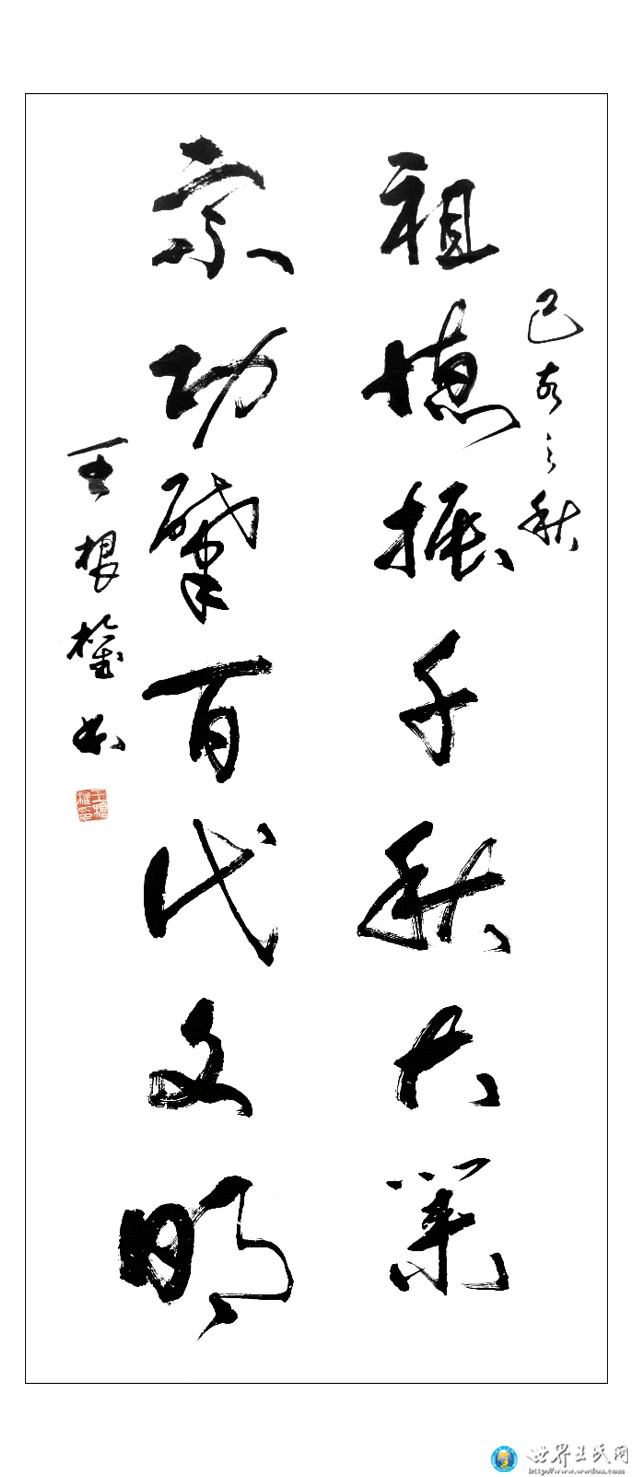 己亥之秋
祖德振千秋大業
宗功肇百代文明
王根權书
世界王氏网
http://www.wwdou.com